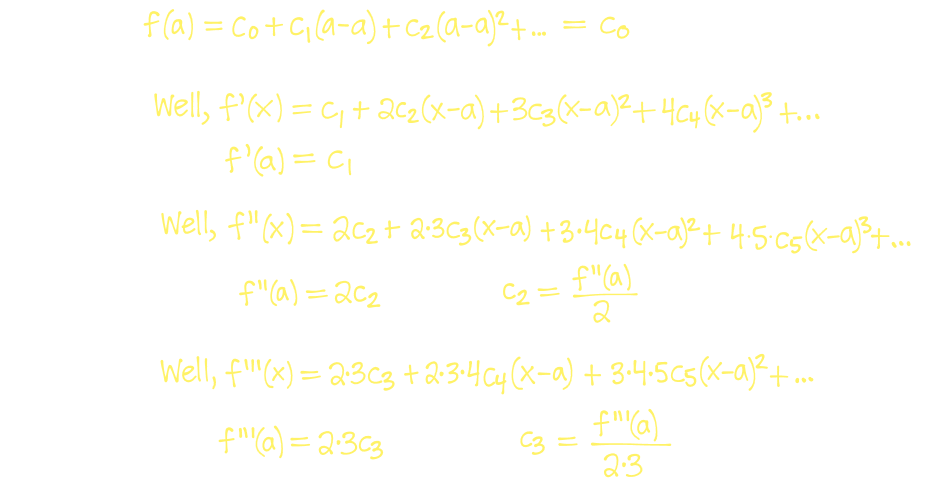 f(a) = c₀ + c₁(a-a) + c₂(a-a)² + ... = c₀
Well, f'(x) = c₁ + 2c₂(x-a) + 3c₃(x-a)² + 4c₄(x-a)³ + ...
f'(a) = c₁
Well, f''(x) = 2c₂ + 2·3c₃(x-a) + 3·4c₄(x-a)² + 4·5·c₅(x-a)³ + ...
f''(a) = 2c₂ c₂ = f''(a)/2
Well, f'''(x) = 2·3c₃ + 2·3·4c₄(x-a) + 3·4·5c₅(x-a)² + ...
f'''(a) = 2·3c₃ c₃ = f'''(a)/2·3